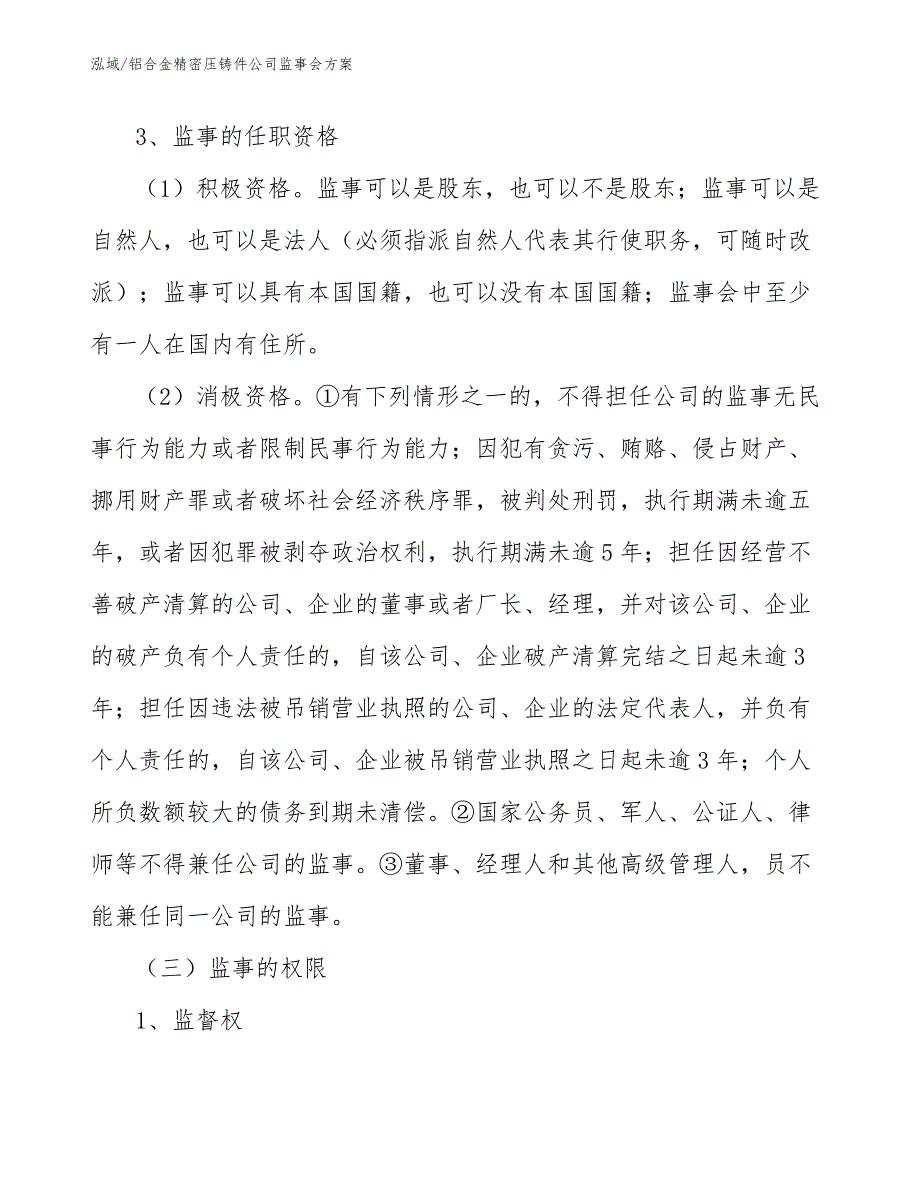 泓域/铝合金精密压铸件公司监事会方案
3、监事的任职资格
（1）积极资格。监事可以是股东，也可以不是股东；监事可以是
自然人，也可以是法人（必须指派自然人代表其行使职务，可随时改
派）；监事可以具有本国国籍，也可以没有本国国籍；监事会中至少
有一人在国内有住所。
（2）消极资格。①有下列情形之一的，不得担任公司的监事无民
事行为能力或者限制民事行为能力；因犯有贪污、贿赂、侵占财产、
挪用财产罪或者破坏社会经济秩序罪，被判处刑罚，执行期满未逾五
年，或者因犯罪被剥夺政治权利，执行期满未逾 5 年；担任因经营不
善破产清算的公司、企业的董事或者厂长、经理，并对该公司、企业
的破产负有个人责任的，自该公司、企业破产清算完结之日起未逾 3
年；担任因违法被吊销营业执照的公司、企业的法定代表人，并负有
个人责任的，自该公司、企业被吊销营业执照之日起未逾 3 年；个人
所负数额较大的债务到期未清偿。②国家公务员、军人、公证人、律
师等不得兼任公司的监事。③董事、经理人和其他高级管理人，员不
能兼任同一公司的监事。
（三）监事的权限
1、监督权